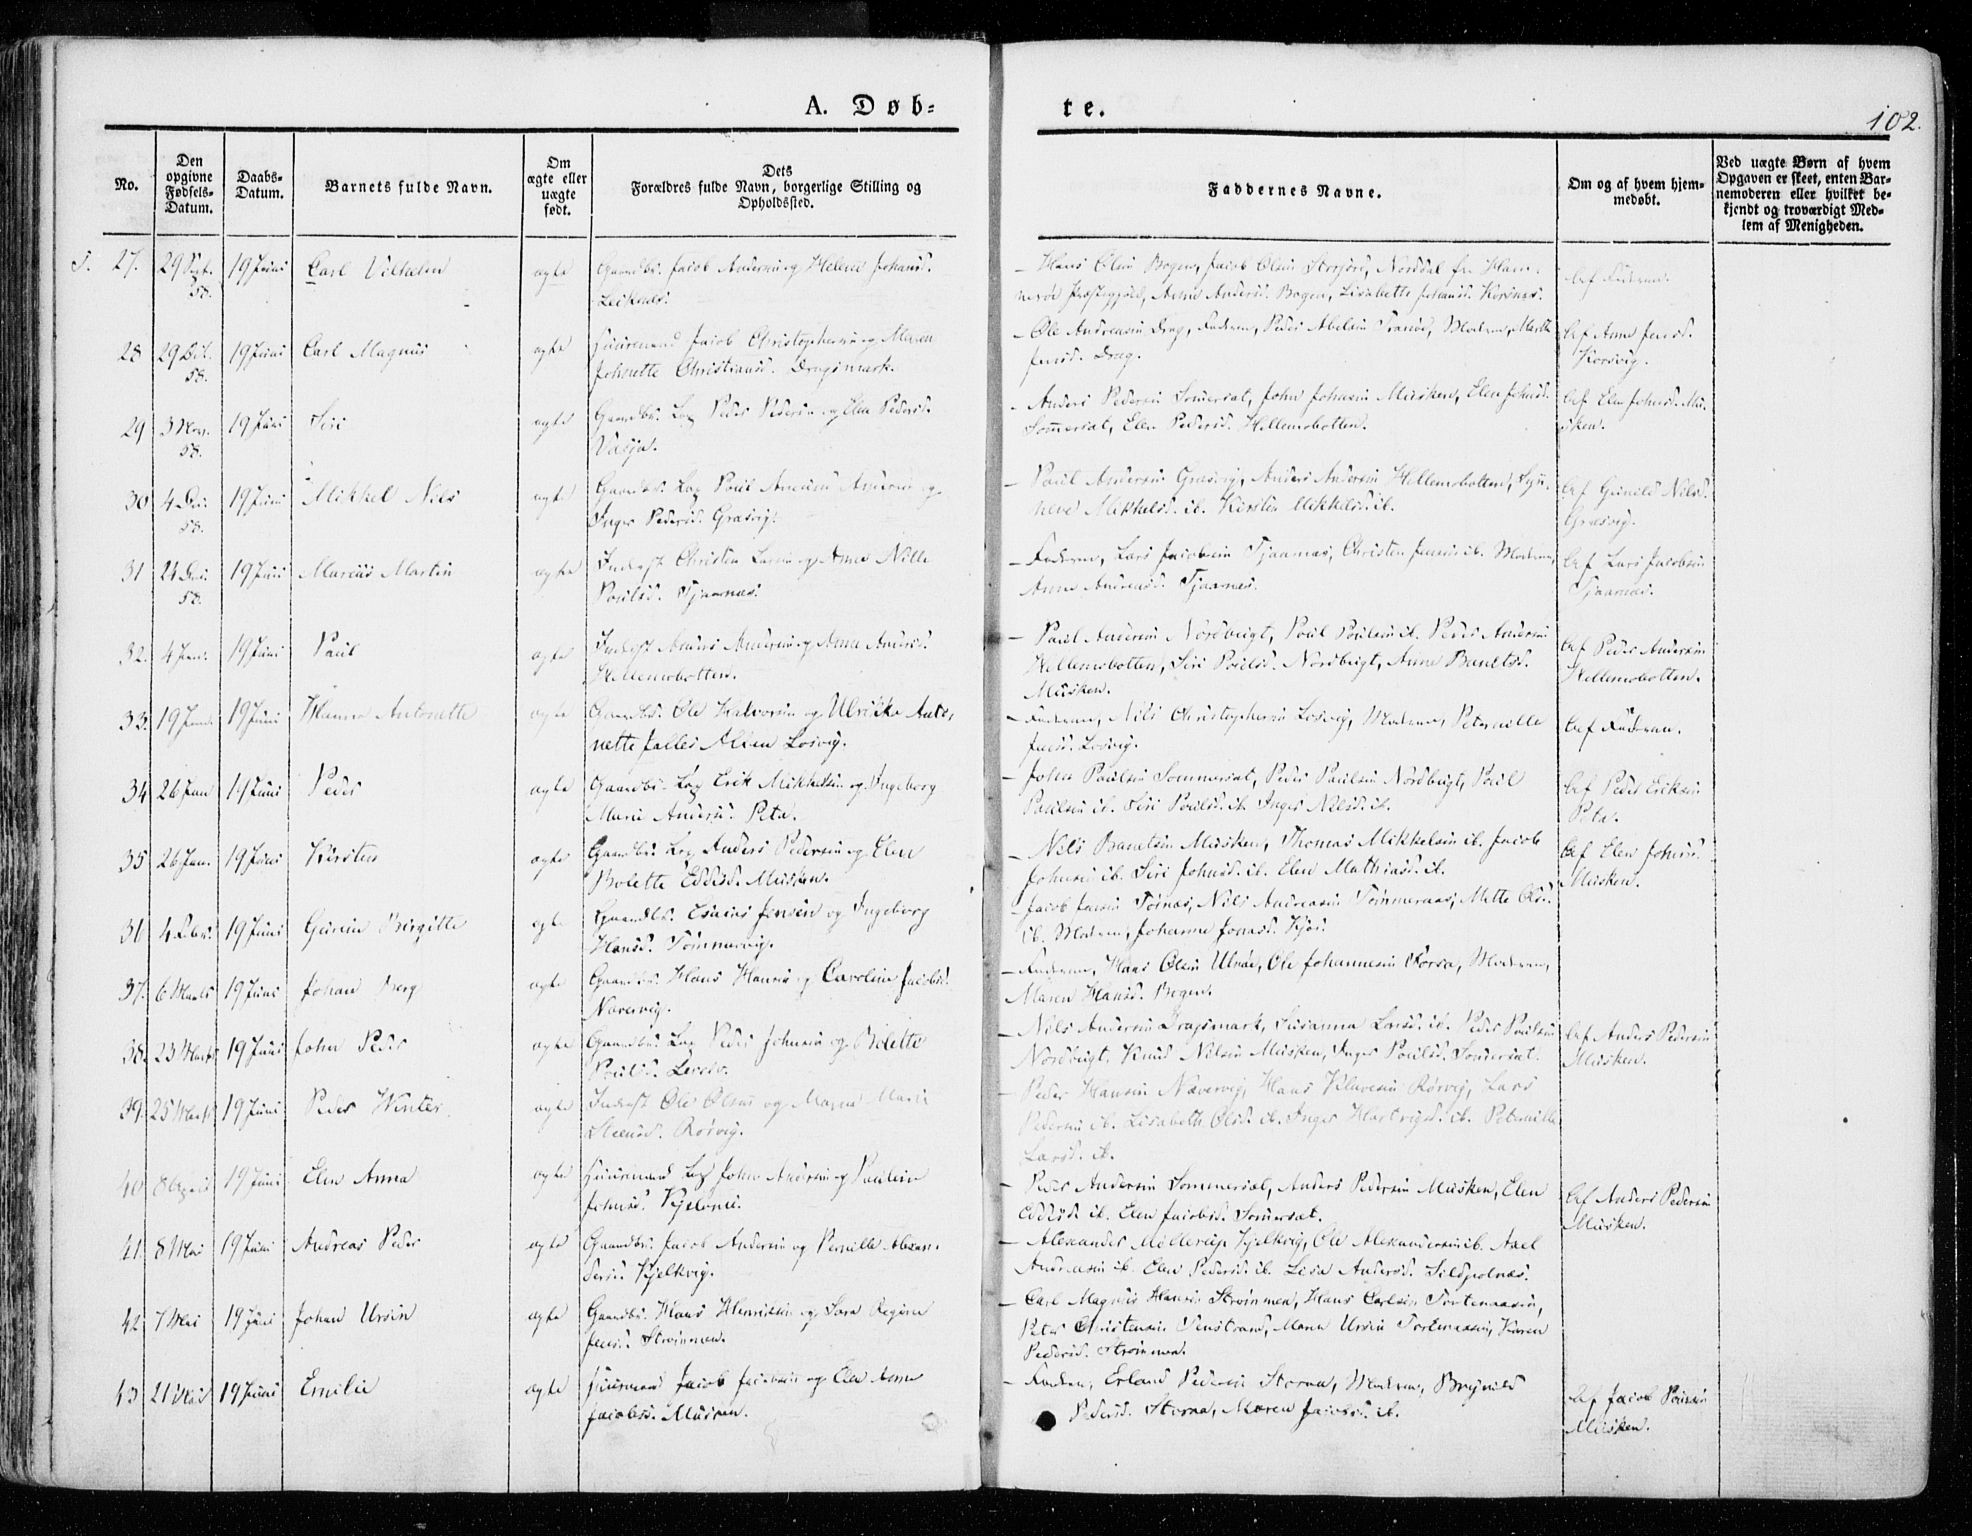 A. Døb=
te.
102.
No.
Den
opgivne
Fødsels=
Datum.
Daabs=
Datum.
Barnets fulde Navn.
Om
ægte eller
uægte
født.
Dets
Forældres fulde Navn, borgerlige Stilling og
Opholdssted.
Faddernes Navne.
Om og af hvem hjem=
medøbt.
Ved uægte Børn af hvem
Opgaven er skeet, enten Bar=
nemoderen eller hvilket be=
kjendt og troværdigt Med=
lem af Menigheden.
27. 29 Sept. 19 Juni Carl Vilhelm ægte Gaardbr. Jacob Andersen og Helene Johansd.
58. Leiknes.
Hans Olsen Bogen, Jacob Olsen Storjord, Norddal fr. Ham-
merø Præstegjeld, Anne Andersd. Bogen, Lisabette Johansd. Korsnæs.
28 29 Oct. 19 Juni Carl Magnus ægte Huusmand Jacob Christophersen og Maren
58. Johnette Christiansd. Dragsmark.
Ole Andreasen Drag, Faderen, Peder Abelsen Tranød, Moderen, Marthe
Jensd. Drag.
Af Anne Jensd.
Korsvig.
29 3 Nov. 19 Juni Siri ægte Gaardbr. Lap Peder Pedersen og Elen Pedersd.
58. Vasja.
Anders Pedersen Somersæt, John Johnsen Musken, Elen Johnsd.
Somersæt, Elen Pedersd. Hellemobotten.
Af Elen Johnsd. Mu-
sken.
30 4 Dec. 19 Juni Mikkel Nils ægte Gaardbr. Lap Poul Andersen og
58. Inger Pedersd. Græsvig.
Paul Andersen Græsvig, Anders Andersen Hellemobotten, Syn-
neve Mikkelsd. ib. Kirsten Mikkelsd. ib.
Af Gunild Nilsd.
Græsvig.
31 24 Dec. 19 Juni Marcus Martin ægte Inderst Christen Larsen og Anne Nille
58. Poulsd. Tjaarnæs.
Faderen, Lars Jacobsen Tjaarnæs, Christen Jensen ib. Moderen,
Anne Andreasd. Tjaarnæs.
Af Lars Jacobsen
Tjaarnæs.
32. 4 Jan. 19 Juni Paul ægte Inderst Anders Andersen og Anne Andersd.
Hellemobotten.
Paul Andersen Nordbugt, Poul Poulsen ib. Peder Andersen
Hellemobotten, Siri Poulsd. Nordbugt, Anne Banetsd.
Musken.
Af Peder Andersen
Hellemobotten.
33. 19 Jan. 19 Juni Hanna Antonette ægte Gaardbr. Ole Halvorsen og Ulrikke Anto-
nette Falles Alsen Losvig.
Faderen, Nils Christophersen Losvig, Moderen, Peternille
Jensd. Losvig.
Af Faderen.
34 26 Jan 19 Juni Peder ægte Gaardbr. Lap Erik Mikkelsen og Ingeborg
Marie Andersd. Pota.
John Paulsen Sommersæt, Peder Paulsen Nordbugt, Poul
Paulsen ib. Siri Poulsd. ib. Inger Nilsd. ib.
Af Peder Eriksen
Pota.
35 26 Jan. 19 Juni Kirsten ægte Gaardbr. Lap Anders Pedersen og Elen
Bolette Eddisd. Musken.
Nils Banetsen Musken, Thomas Mikkelsen ib. Jacob
Johnsen ib. Siri Johnsd. ib. Elen Mathiasd. ib.
Af Elen Johnsd.
Musken.
36 4 Febr. 19 Juni Gurine Birgitte ægte Gaardbr. Esaias Jensen og Ingeborg
Hansd. Tømmervig.
Jacob Jensen Tørnæs, Nils Andreasen Tømmeraas, Mette Olsd.
ib. Moderen, Johanne Jonasd. Kjør.
37. 6 Marts 19 Juni Johan Berg ægte Gaardbr. Hans Hansen og Caroline Jacobsd.
Nævervig.
Faderen, Hans Olsen Ulvik, Ole Johannesen Forsa, Moderen,
Maren Hansd. Bogen.
38. 23 Marts 19 Juni John Peder ægte Gaardbr. Lap Peder Johnsen og Bolette
Poulsd.
Nils Andersen Dragsmark, Susanna Larsd. ib. Peder Poulsen
Nordbugt, Knud Nilsen Musken, Inger Poulsd. Somersæt.
Af Anders Pedersen
Musken.
39. 25 Marts 19 Juni Peder Winter ægte Inderst Ole Olsen og Marie
Steensd. Rørvig.
Peder Hansen Nævervig, Hans Klavesen Rørvig, Lars
Pedersen ib. Lisabeth Olsd. ib. Inger Hartvigsd. ib. Peternille
Larsd. ib.
40 8 April 19 Juni Elen Anna ægte Huusmand Lap John Andersen og Pauline
Johnsd.
Peder Andersen Sommersæt, Anders Pedersen Musken, Elen
Eddisd. ib. Elen Jacobsd. Somersæt.
Af Anders Pedersen
Musken.
41. 8 Mai 19 Juni Andreas Peder ægte Gaardbr. Jacob Andersen og Pernille Alexan-
dersd. Kjelkvig.
Alexander Møllerup Kjelkvig, Ole Alexandersen ib. Axel
Andreasen ib. Elen Pedersd. ib. Lisa Andersd. Sildpolnæs.
42 7 Mai 19 Juni Johan Ursin ægte Gaardbr. Hans Henriksen og Sara Regine
Jensd. Strømmen.
Carl Magnus Hansen Strømmen, Hans Carlsen Tortenaasen,
Peter Christensen Tenstrand, Maren Ursin Tortenaasen, Karen
Pedersd. Strømmen.
43 21 Mai 19 Juni Emilie ægte Huusmand Jacob Jacobsen og Elen Anne
Jacobsd. Musken.
Faderen, Erland Pedersen Storaa, Moderen, Brynild
Pedersd. Storaa, Maren Jacobsd. ib.
Af Jacob Poulsen
Musken.